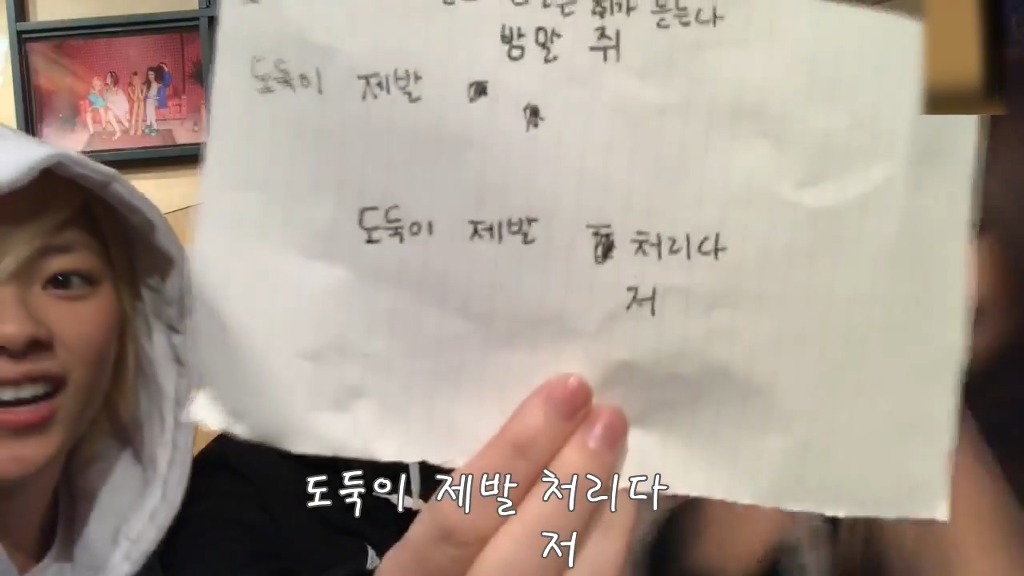 쥐가 듣는다
밤말 쥐
도둑이 제발
도둑이 제발 처리다
저
도둑이 제발 처리다
저